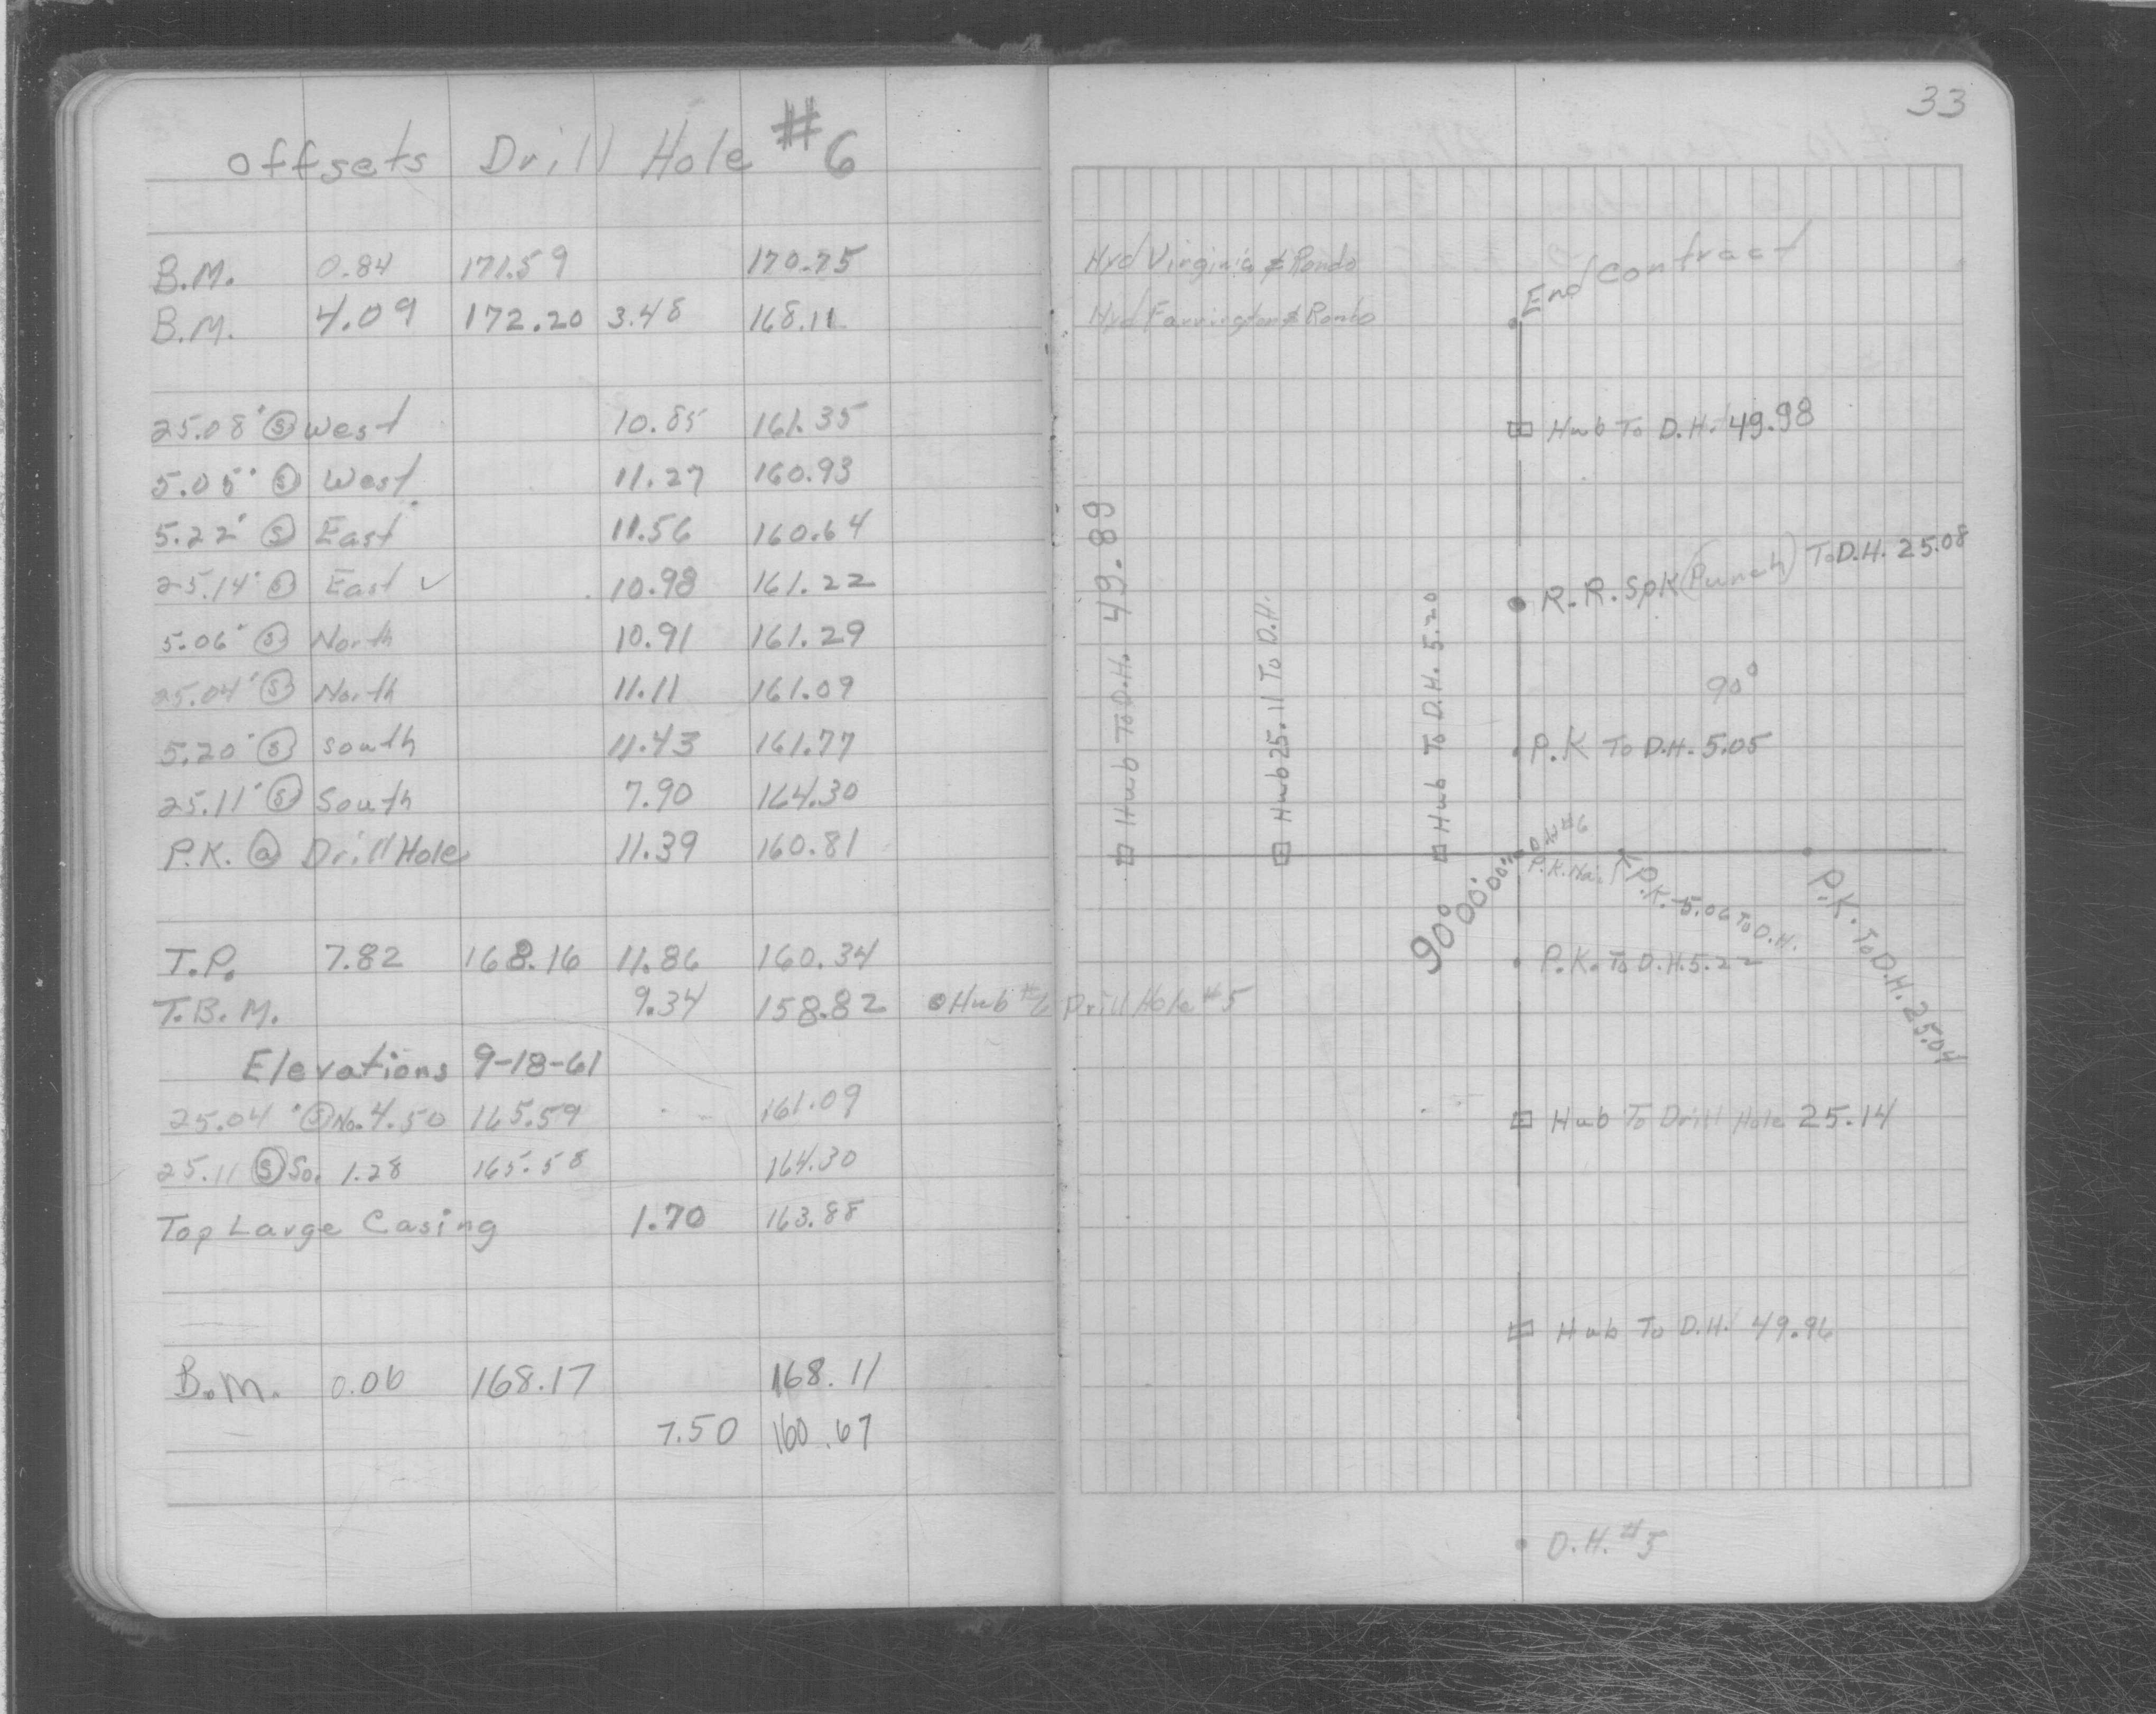 33
Offsets Drill Hole #6
B.M. 0.84 171.59 170.75 Hyd Virginia & Rondo
B.M. 4.09 172.20 3.48 168.11 Hyd Farrington & Rondo
25.08' Ⓢ West 10.85 161.35
5.05' Ⓢ West 11.27 160.93
5.22' Ⓢ East 11.56 160.64
25.14' Ⓢ East ✓ 10.98 161.22
5.06' Ⓢ North 10.91 161.29
25.04' Ⓢ North 11.11 161.09
5.20' Ⓢ South 11.43 161.77
25.11' Ⓢ South 7.90 164.30
P.K. @ Drill Hole 11.39 160.81
T.P. 7.82 168.16 11.86 160.34
T.B.M. 9.34 158.82 Hub #6 Drill Hole #5
Elevations 9-18-61
25.04' Ⓢ No. 4.50 165.59 161.09
25.11 Ⓢ So. 1.28 165.58 164.30
Top Large Casing 1.70 163.88
B.M. 0.06 168.17 168.11
7.50 160.67
End Contract
Hub To D.H. 49.98
R.R. Spk (Punch) To D.H. 25.08
90°
P.K To D.H. 5.05
Hub To D.H. 49.89
Hub 25.11 To D.H.
Hub To D.H. 5.20
D.H. #6
P.K. Nail
90° 00' 00"
P.K. 5.06 To D.H.
P.K. To D.H. 25.04
P.K. To D.H. 5.22
Hub To Drill Hole 25.14
Hub To D.H. 49.96
D.H. #5